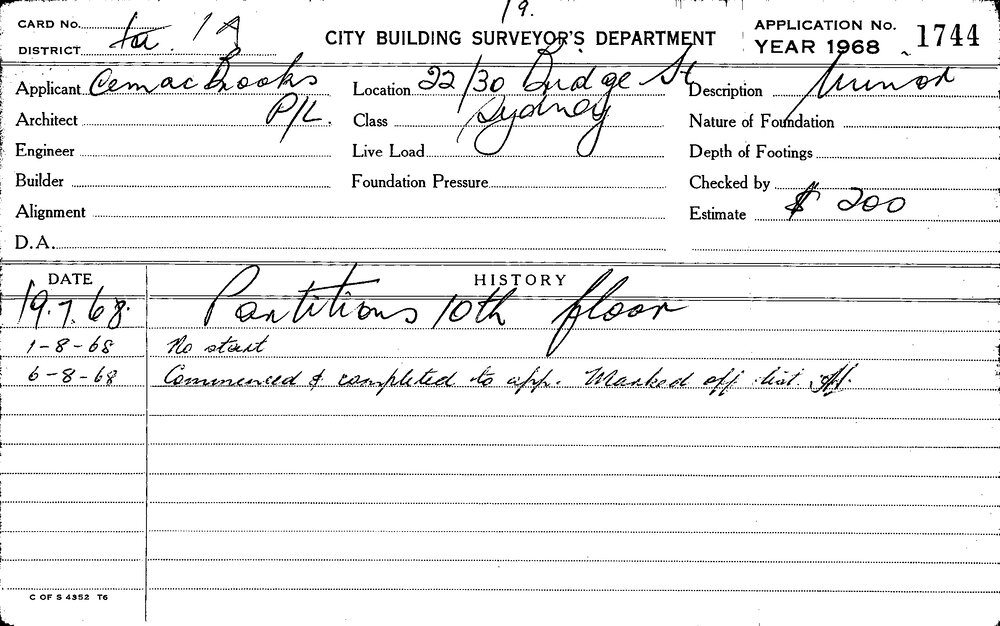 19.
CARD No. APPLICATION No. 1744
DISTRICT 1A CITY BUILDING SURVEYOR'S DEPARTMENT YEAR 1968
Applicant Cemac Brooks Location 22/30 Bridge St Description Minor
Architect P/L. Class Sydney Nature of Foundation
Engineer Live Load Depth of Footings
Builder Foundation Pressure Checked by
Alignment Estimate $ 200
D.A.
DATE HISTORY
19.7.68. Partitions 10th floor
1-8-68 No start
6-8-68 Commenced & completed to app. Marked off list.
C OF S 4352 T6